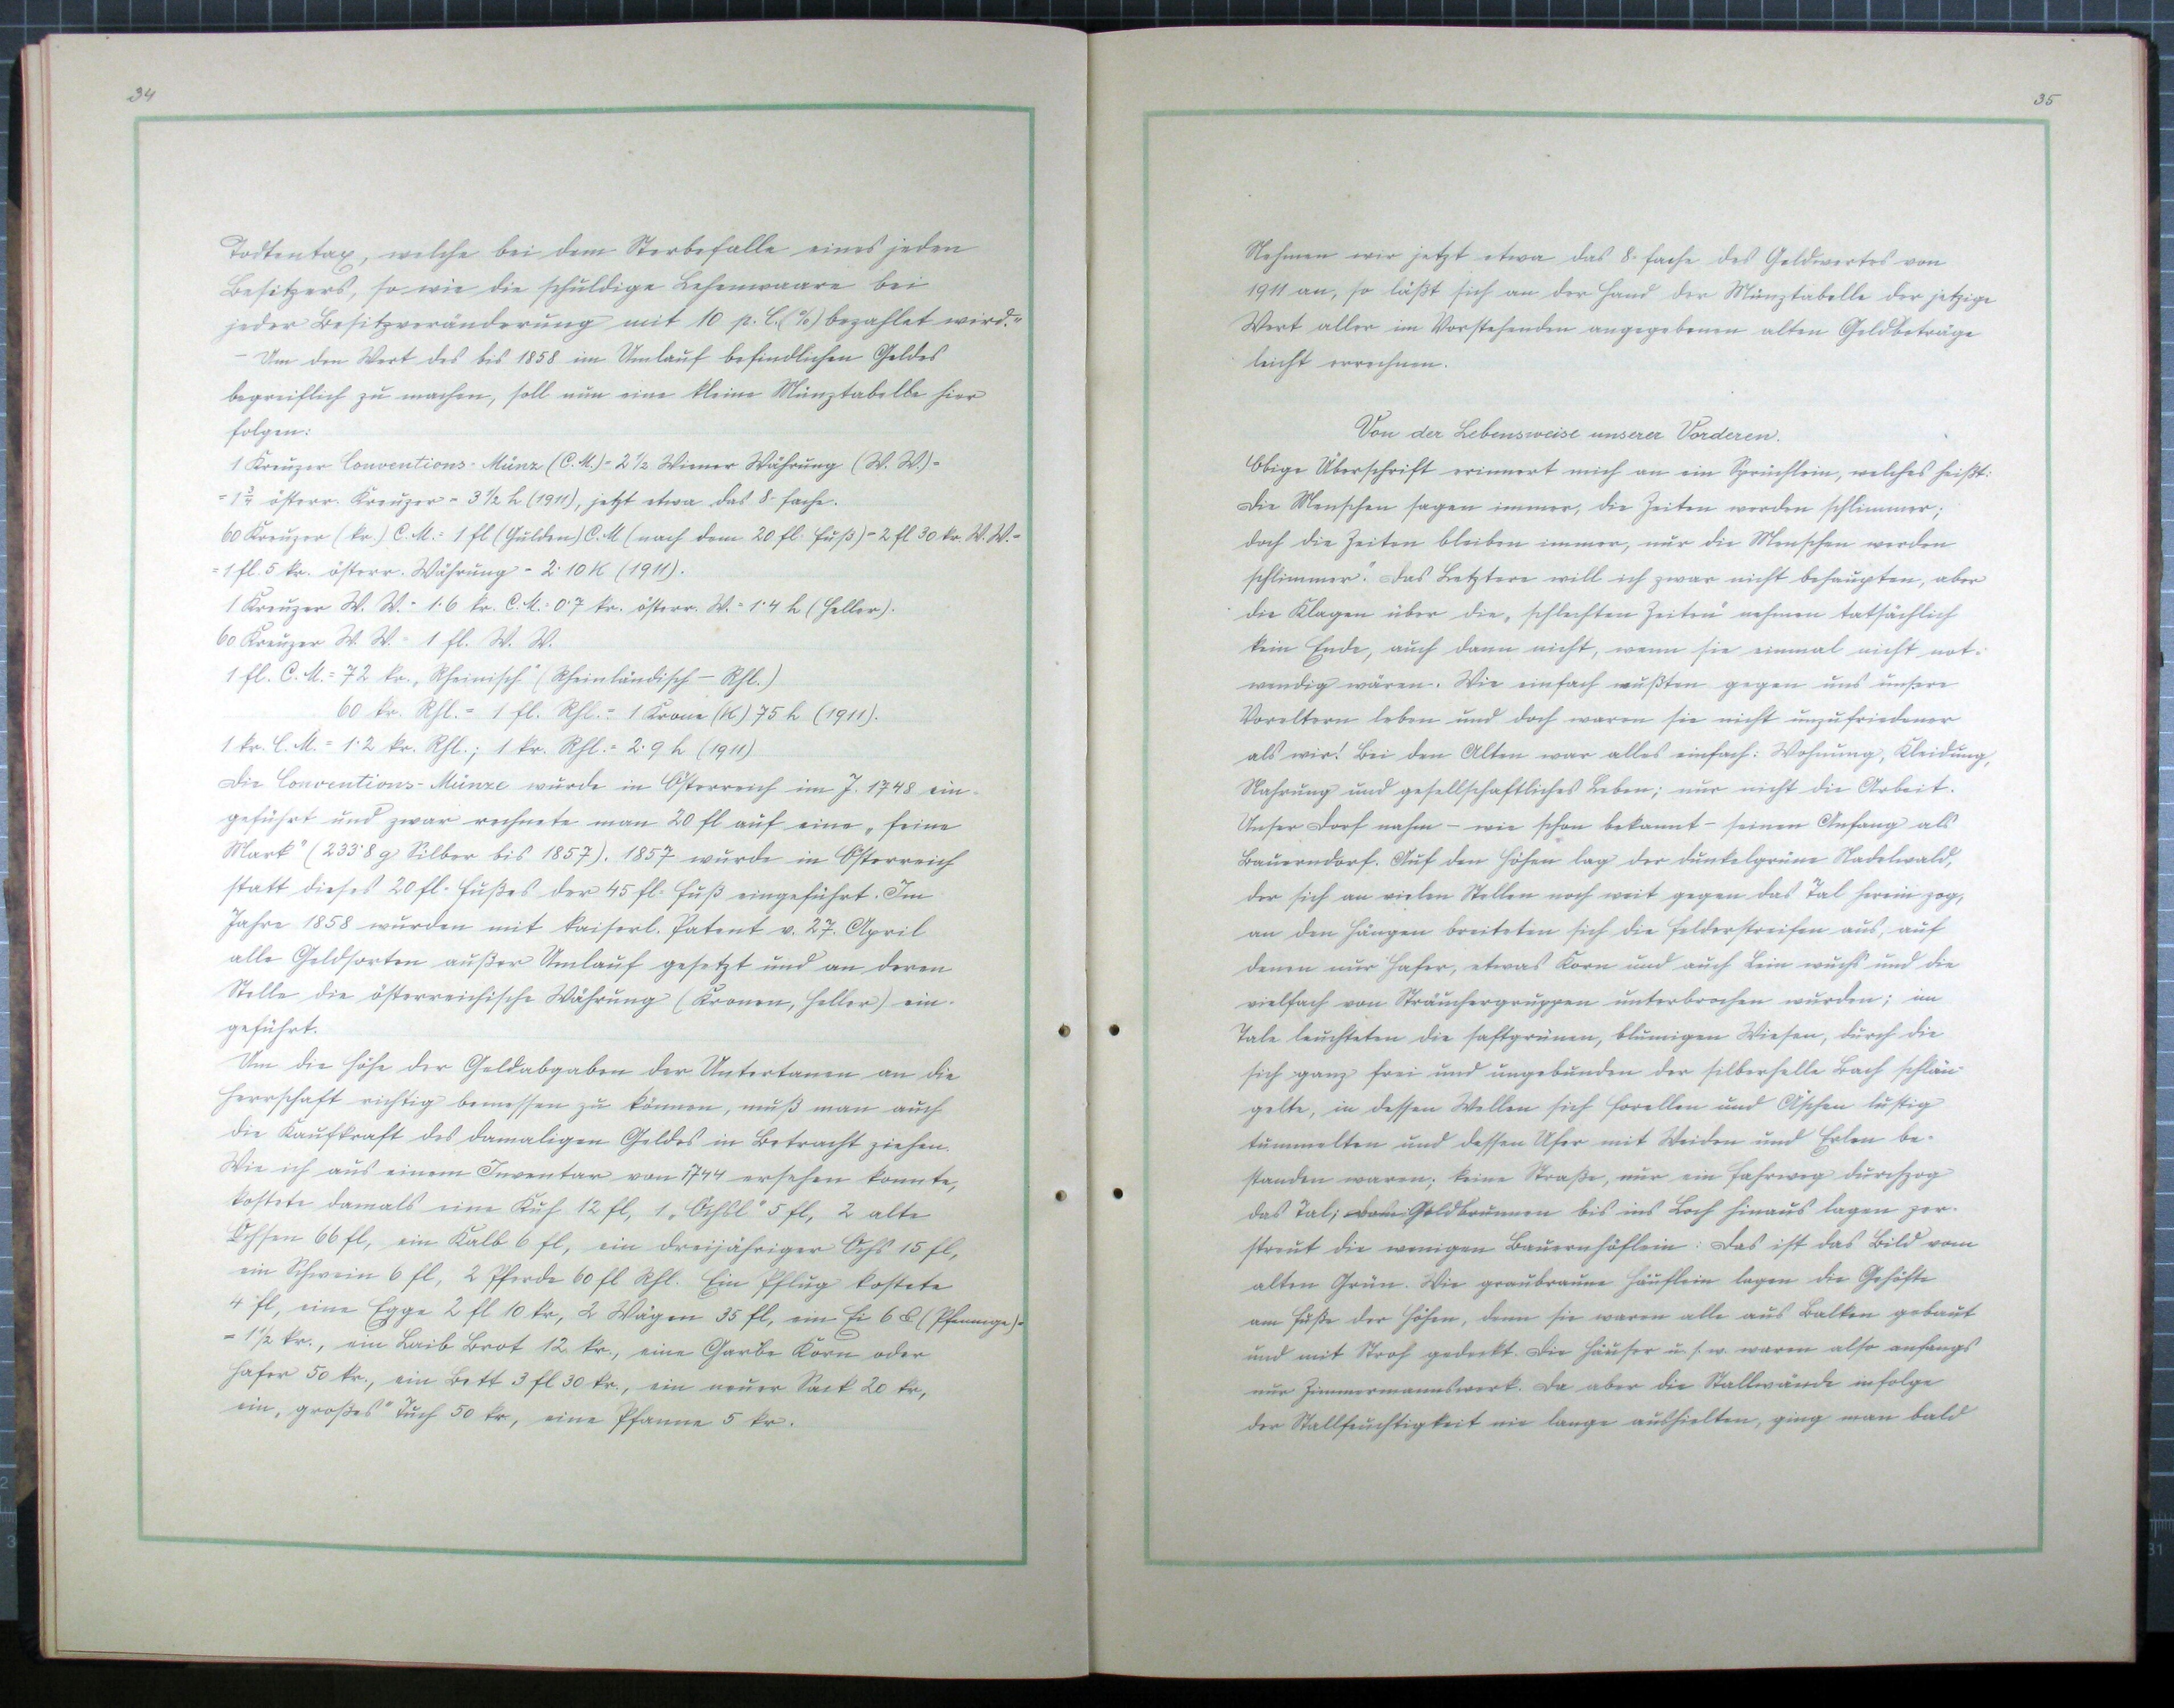 34
Todtentax, welche bei dem Sterbefalle eines jeden
Besitzers, so wie die schuldige Lehenwaare bei
jeder Besitzveränderung mit 10 p. C. (%) bezahlet wird."
- Um den Wert des bis 1858 im Umlauf befindlichen Geldes
begreiflich zu machen, soll nun eine kleine Münztabelle hier
folgen:
1 Kreuzer Conventions-Münz (C. M.) = 2 1/2 Wiener Währung (W. W.) =
= 1 3/4 österr. Kreuzer = 3 1/2 h (1911), jetzt etwa das 8-fache.
60 Kreuzer (kr.) C. M. = 1 fl (Gulden) C. M (nach dem 20 fl. Fuß) = 2 fl 30 kr. W. W. =
= 1 fl. 5 kr. österr. Währung = 2·10 K (1911).
1 Kreuzer W. W. = 1·6 kr. C. M. = 0·7 kr. österr. W. = 1·4 h (Heller).
60 Kreuzer W. W. = 1 fl. W. W.
1 fl. C. M. = 72 kr. „Rheinisch" (Rheinländisch - Rhl.)
60 kr. Rhl. = 1 fl. Rhl. = 1 Krone (K) 75 h (1911).
1 kr. C. M. = 1·2 kr. Rhl.; 1 kr. Rhl. = 2·9 h (1911)
Die Conventions-Münze wurde in Österreich im J. 1748 ein-
geführt und zwar rechnete man 20 fl auf eine „feine
Mark" (233·8 g Silber bis 1857). 1857 wurde in Österreich
statt dieses 20 fl.-Fußes der 45 fl.-Fuß eingeführt. Im
Jahre 1858 wurden mit kaiserl. Patent v. 27. April
alle Geldsorten außer Umlauf gesetzt und an deren
Stelle die österreichische Währung (Kronen, Heller) ein-
geführt.
Um die Höhe der Geldabgaben der Untertanen an die
Herrschaft richtig bemessen zu können, muß man auch
die Kaufkraft des damaligen Geldes in Betracht ziehen.
Wie ich aus einem Inventar von 1744 ersehen konnte,
kostete damals eine Kuh 12 fl, 1 „Öchsl" 5 fl, 2 alte
Ochsen 66 fl, ein Kalb 6 fl, ein dreijähriger Ochs 15 fl,
ein Schwein 6 fl, 2 Pferde 60 fl Rhl. Ein Pflug kostete
4 fl, eine Egge 2 fl 10 kr, 2 Wägen 35 fl, ein Ei 6 ₰ (Pfennige) =
= 1 1/2 kr., ein Laib Brot 12 kr., eine Garbe Korn oder
Hafer 50 kr., ein Bett 3 fl 30 kr., ein neuer Sack 20 kr,
ein „großes" Tuch 50 kr, eine Pfanne 5 kr.
35
Nehmen wir jetzt etwa das 8-fache des Geldwertes von
1911 an, so läßt sich an der Hand der Münztabelle der jetzige
Wert aller im Vorstehenden angegebenen alten Geldbeträge
leicht errechnen.
Von der Lebensweise unserer Vorderen.
Obige Überschrift erinnert mich an ein Sprüchlein, welches heißt:
Die Menschen sagen immer, die Zeiten werden schlimmer;
doch die Zeiten bleiben immer, nur die Menschen werden
schlimmer." Das Letztere will ich zwar nicht behaupten, aber
die Klagen über die „schlechten Zeiten" nehmen tatsächlich
kein Ende, auch dann nicht, wenn sie einmal nicht not-
wendig wären. Wie einfach mußten gegen uns unsere
Voreltern leben und doch waren sie nicht unzufriedener
als wir! Bei den Alten war alles einfach: Wohnung, Kleidung,
Nahrung und gesellschaftliches Leben; nur nicht die Arbeit.
Unser Dorf nahm - wie schon bekannt - seinen Anfang als
Bauerndorf. Auf den Höhen lag der dunkelgrüne Nadelwald,
der sich an vielen Stellen noch weit gegen das Tal herein zog,
an den Hängen breiteten sich die Felderstreifen aus, auf
denen nur Hafer, etwas Korn und auch Lein wuchs und die
vielfach von Sträuchergruppen unterbrochen wurden; im
Tale leuchteten die saftgrünen, blumigen Wiesen, durch die
sich ganz frei und ungebunden der silberhelle Bach schlän-
gelte, in dessen Wellen sich Forellen und Äschen lustig
tummelten und dessen Ufer mit Weiden und Erlen be-
standen waren; keine Straße, nur ein Fahrweg durchzog
das Tal; vom Goldbrunnen bis ins Loch hinaus lagen zer-
streut die wenigen Bauernhöflein: Das ist das Bild vom
alten Grün. Wie graubraune Häuflein lagen die Gehöfte
am Fuße der Höhen, denn sie waren alle aus Balken gebaut
und mit Stroh gedeckt. Die Häuser u. s. w. waren also anfangs
nur Zimmermannswerk. Da aber die Stallwände infolge
der Stallfeuchtigkeit nie lange aushielten, ging man bald